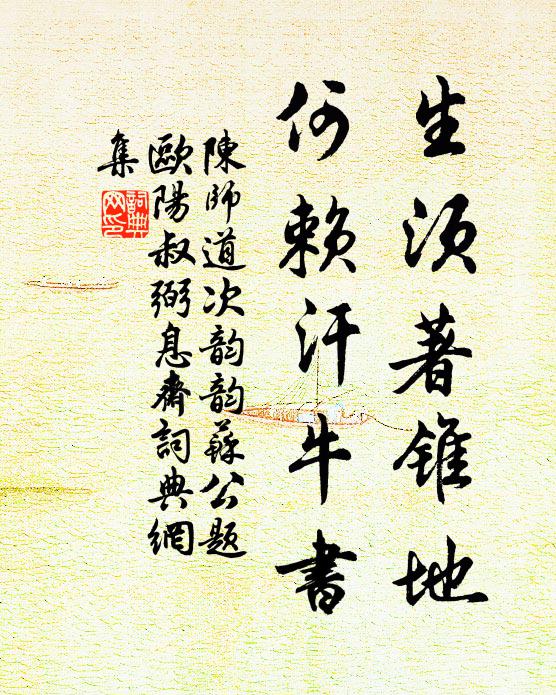 生須著錐地
何賴汗牛書
陳師道次韵韵蘇公題
歐陽叔弼息齋詞典網
集
詞典網印